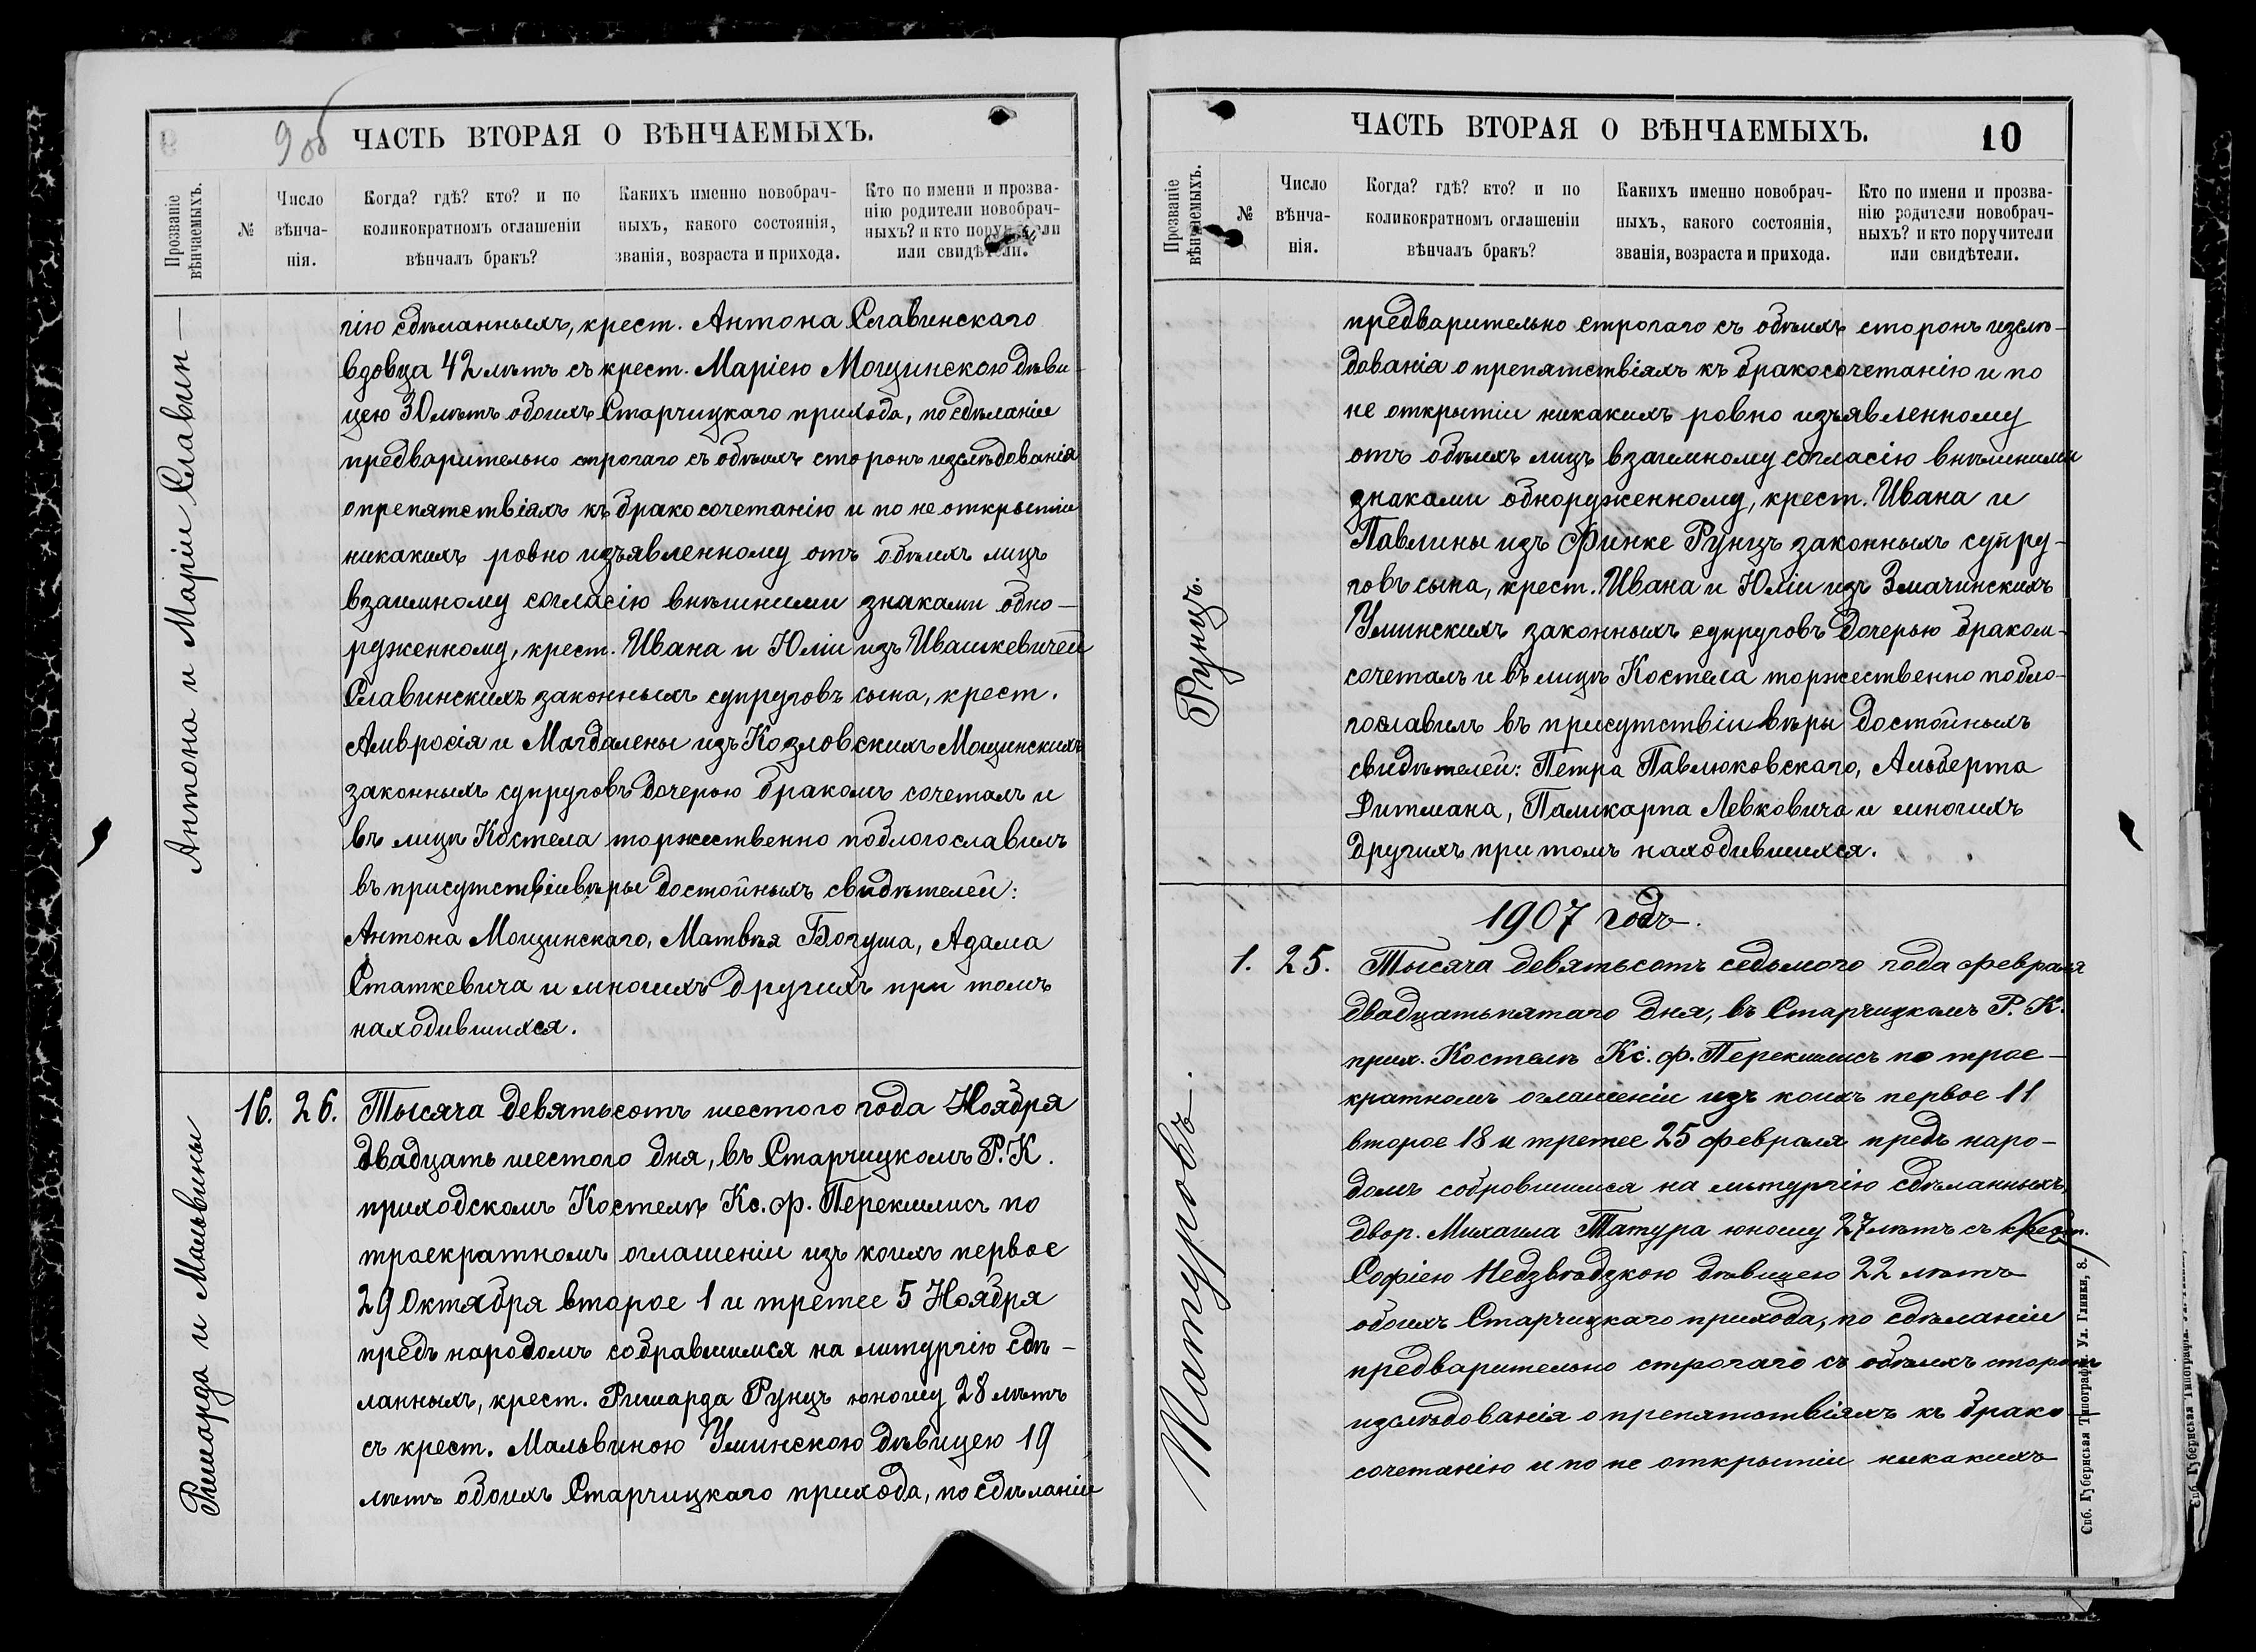 9 об
ЧАСТЬ ВТОРАЯ О ВѢНЧАЕМЫХЪ.
Прозваніе
вѣнчаемыхъ.
№
Число
вѣнча-
нія.
Когда? гдѣ? кто? и по
коликократномъ оглашеніи
вѣнчалъ бракъ?
Какихъ именно новобрач-
ныхъ, какого состоянія,
званія, возраста и прихода.
Кто по имени и прозва-
нію родители новобрач-
ныхъ? и кто поручители
или свидѣтели.
Антона и Маріи Славин—
гію сдѣланныхъ, крест. Антона Славинскаго
вдовца 42 лѣтъ съ крест. Маріею Мощинскою дѣви-
цею 30 лѣтъ обоихъ Старчицкаго прихода, по сдѣланіи
предварительно строгаго съ обѣихъ сторонъ изслѣдованія
о препятствіяхъ къ бракосочетанію и по не открытіи
никакихъ ровно изъявленному отъ обѣихъ лицъ
взаимному согласію внѣшними знаками обно-
рженному, крест. Ивана и Юліи изъ Ивашкевичей
Славинскихъ законныхъ супруговъ сына, крест.
Амвросія и Магдалены изъ Козловскихъ Мощинскихъ
законныхъ супруговъ дочерью бракомъ сочеталъ и
въ лицѣ Костела торжественно поблогославилъ
въ присутствіи вѣры достойныхъ свидѣтелей:
Антона Мощинскаго, Матвѣя Богуша, Адама
Статкевича и многихъ другихъ при томъ
находившихся.
Ришарда и Мальвины
16. 26. Тысяча девятьсотъ шестого года Ноября
двадцать шестого дня, въ Старчицкомъ Р. К.
приходскомъ Костелѣ Кс. ф. Перекшлисъ по
троекратномъ оглашеніи изъ коихъ первое
29 Октября второе 1 и третее 5 Ноября
предъ народомъ собравшимся на литургію сдѣ-
ланныхъ, крест. Ришарда Рунцъ юношу 28 лѣтъ
съ крест. Мальвиною Улинскою дѣвицею 19
лѣтъ обоихъ Старчицкаго прихода, по сдѣланіи
ЧАСТЬ ВТОРАЯ О ВѢНЧАЕМЫХЪ.
10
Прозваніе
вѣнчаемыхъ.
№
Число
вѣнча-
нія.
Когда? гдѣ? кто? и по
коликократномъ оглашеніи
вѣнчалъ бракъ?
Какихъ именно новобрач-
ныхъ, какого состоянія,
званія, возраста и прихода.
Кто по имени и прозва-
нію родители новобрач-
ныхъ? и кто поручители
или свидѣтели.
Рунцъ.
предварительно строгаго съ обѣихъ сторонъ изслѣ-
дованія о препятствіяхъ къ бракосочетанію и по
не открытіи никакихъ ровно изъявленному
отъ обѣихъ лицъ взаимному согласію внѣшними
знаками обноруженному, крест. Ивана и
Павлины изъ Финке Рунцъ законныхъ супру-
говъ сына, крест. Ивана и Юліи изъ Змачинскихъ
Улинскихъ законныхъ супруговъ дочерью браком-
сочеталъ и въ лицѣ Костела торжественно побло-
гославилъ въ присутствіи вѣры достойныхъ
свидѣтелей: Петра Павлюковскаго, Альберта
Дитмана, Паликарпа Левковича и многихъ
другихъ при томъ находившихся.
1907 годъ.
Татуровъ.
1. 25. Тысяча девятьсотъ седьмого года февраля
двадцатьпятаго дня, въ Старчицкомъ Р. К.
прих. Костелѣ Кс. ф. Перекшлисъ по трое-
кратномъ оглашеніи изъ коихъ первое 11
второе 18 и третее 25 февраля предъ наро-
домъ собровшимся на литургію сдѣланныхъ,
двор. Михаила Татура юношу 27 лѣтъ съ крест.
Софіею Недзвѣдзкою дѣвицею 22 лѣтъ
обоихъ Старчицкаго прихода, по сдѣланіи
предварительно строгаго съ обѣихъ сторонъ
изслѣдованія о препятствіяхъ къ брако-
сочетанію и по не открытіи никакихъ
Спб. Губернская Типографія. Ул. Глинки, 8.
Спб. Губернская Типографія.